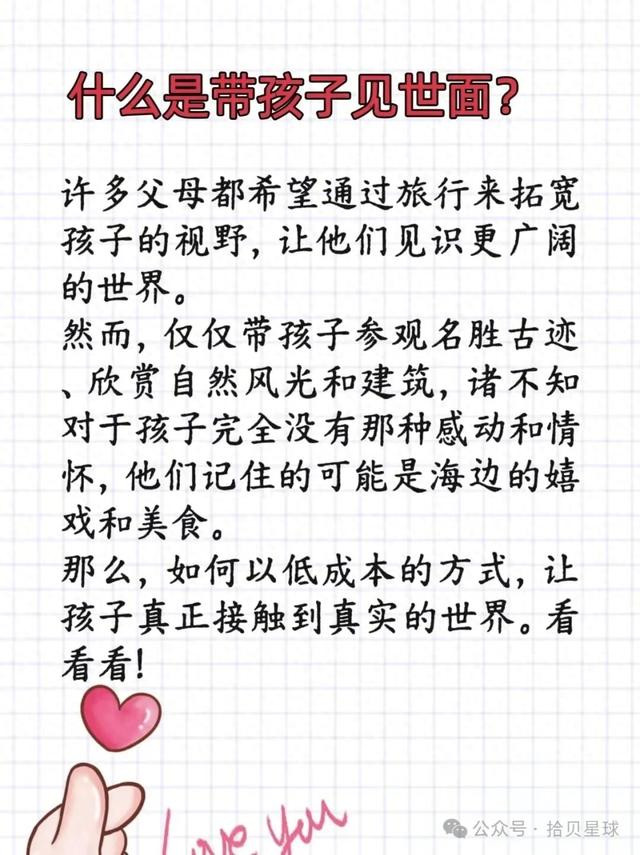 什么是带孩子见世面？
许多父母都希望通过旅行来拓宽
孩子的视野，让他们见识更广阔
的世界。
然而，仅仅带孩子参观名胜古迹
、欣赏自然风光和建筑，诸不知
对于孩子完全没有那种感动和情
怀，他们记住的可能是海边的嬉
戏和美食。
那么，如何以低成本的方式，让
孩子真正接触到真实的世界。看
看看！
Love You
公众号·拾贝星球